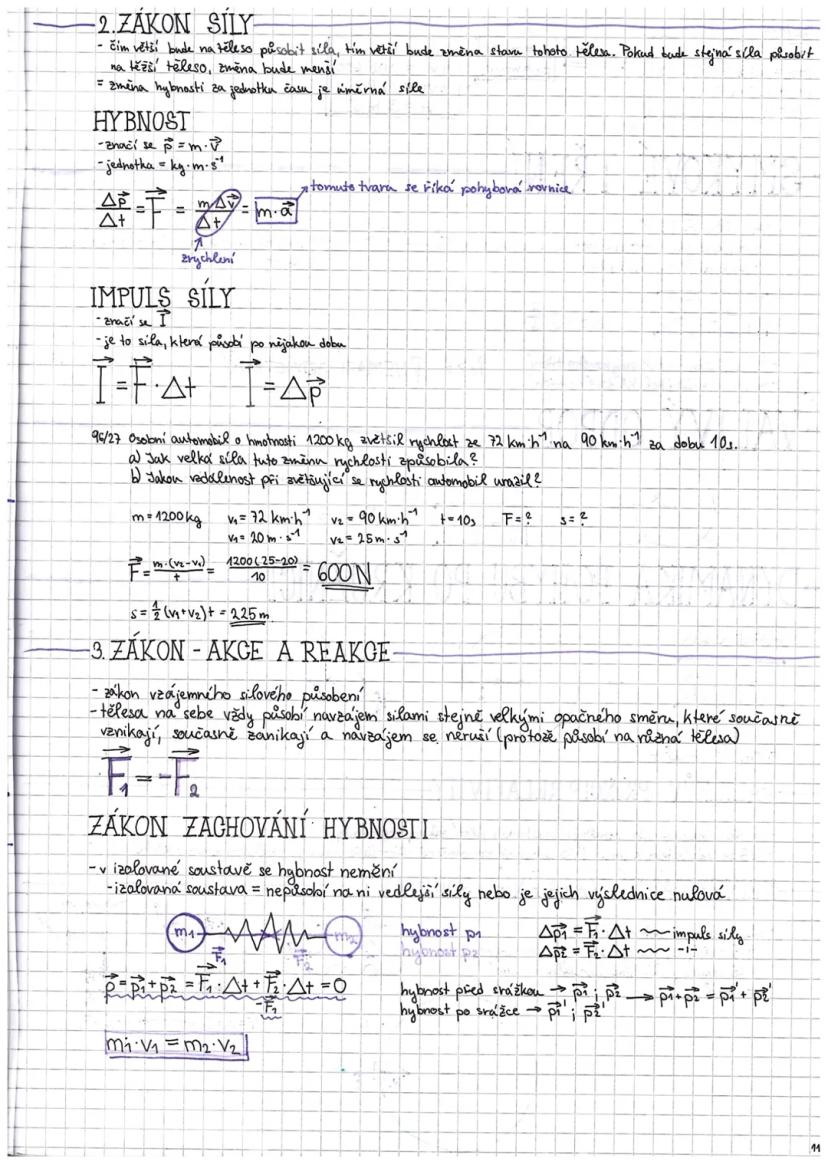 2. ZÁKON SÍLY
- čím větší bude na těleso působit síla, tím větší bude změna stavu tohoto tělesa. Pokud bude stejná síla působit
na těžší těleso, změna bude menší
= změna hybnosti za jednotku času je úměrná síle
HYBNOST
- značí se p⃗ = m · v⃗
- jednotka = kg · m · s⁻¹
tomuto tvaru se říká pohybová rovnice
Δp⃗/Δt = F⃗ = m Δv⃗/Δt = m · a⃗
zrychlení
IMPULS SÍLY
- značí se I⃗
- je to síla, která působí po nějakou dobu
I⃗ = F⃗ · Δt I⃗ = Δp⃗
96/27 Osobní automobil o hmotnosti 1200 kg zvětšil rychlost ze 72 km·h⁻¹ na 90 km·h⁻¹ za dobu 10s.
a) Jak velká síla tuto změnu rychlosti způsobila?
b) Jakou vzdálenost při zvětšující se rychlosti automobil urazil?
m = 1200 kg v₁ = 72 km·h⁻¹ v₂ = 90 km·h⁻¹ t = 10s F = ? s = ?
v₁ = 20 m · s⁻¹ v₂ = 25 m · s⁻¹
F⃗ = m·(v₂-v₁)/t = 1200(25-20)/10 = 600 N
s = ½ (v₁+v₂)t = 225 m
3. ZÁKON - AKCE A REAKCE
- zákon vzájemného silového působení
- tělesa na sebe vždy působí navzájem silami stejně velkými opačného směru, které současně
vznikají, současně zanikají a navzájem se neruší (protože působí na různá tělesa)
F⃗₁ = -F⃗₂
ZÁKON ZACHOVÁNÍ HYBNOSTI
- v izolované soustavě se hybnost nemění
- izolovaná soustava = nepůsobí na ni vedlejší síly nebo je jejich výslednice nulová
m₁ m₂ hybnost p₁ Δp⃗₁ = F⃗₁ · Δt ~ impuls síly
F⃗₁ F⃗₂ hybnost p₂ Δp⃗₂ = F⃗₂ · Δt ~ -ı-
p⃗ = p⃗₁ + p⃗₂ = F⃗₁ · Δt + F⃗₂ · Δt = 0
-F⃗₁
hybnost před srážkou → p⃗₁ ; p⃗₂ → p⃗₁ + p⃗₂ = p⃗₁' + p⃗₂'
hybnost po srážce → p⃗₁' ; p⃗₂'
m₁ · v₁ = m₂ · v₂
11